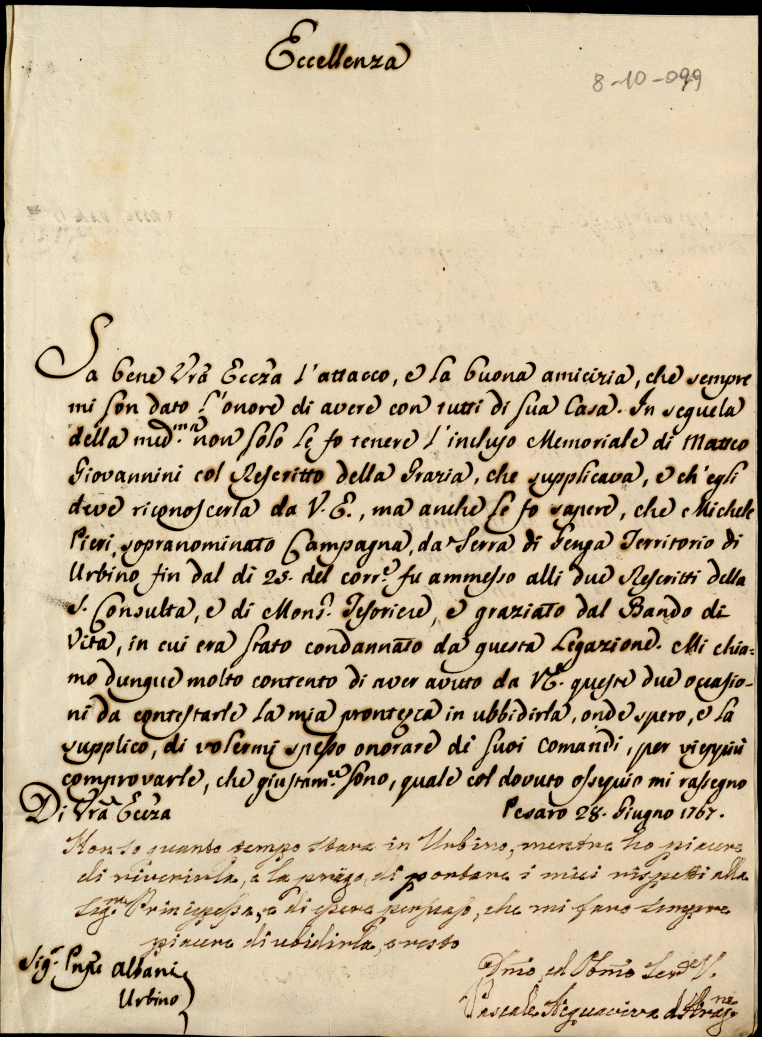 Eccellenza
8-10-099
Sa bene Vrã Eccza l'attacco, e la buona amicizia, che sempre
mi son dato l'onore di avere con tutti di sua Casa. In sequela
della med.ma non solo le fo tenere l'incluso Memoriale di Matteo
Giovannini col Rescritto della Grazia, che supplicava, e ch'egli
deve riconoscerla da V. E., ma anche le fo sapere, che Michele
Pieri, sopranominato Campagna, da Serra di Genga Territorio di
Urbino, fin dal di 25. del corr.e fu ammesso alli due Rescritti della
S. Consulta, e di Mons.r Tesoriere, e graziato dal Bando di
Vita, in cui era stato condannato da questa Legazione. Mi chia=
mo dunque molto contento di aver avuto da VE. queste due occasio-
ni da contestarle la mia prontezza in ubbidirla, onde spero, e la
supplico, di volermi spesso onorare di suoi comandi, per vieppiù
comprovarle, che giustam.te sono, quale col dovuto ossequio mi rassegno
Di Vrã Eccza Pesaro 28. Giugno 1767.
Non so quanto tempo stara in Urbino, mentre ho piacere
di riverirla, e la prego di portare i miei rispetti alla
Sig.ra Principessa, e di essere persuaso, che mi fara sempre
piacere di ubidirla, e resto
Sig.r Pnpe Albani
Urbino
Dmo, ed Obmo Serv.e V.
Pascale Acquaviva d'Arag.ne